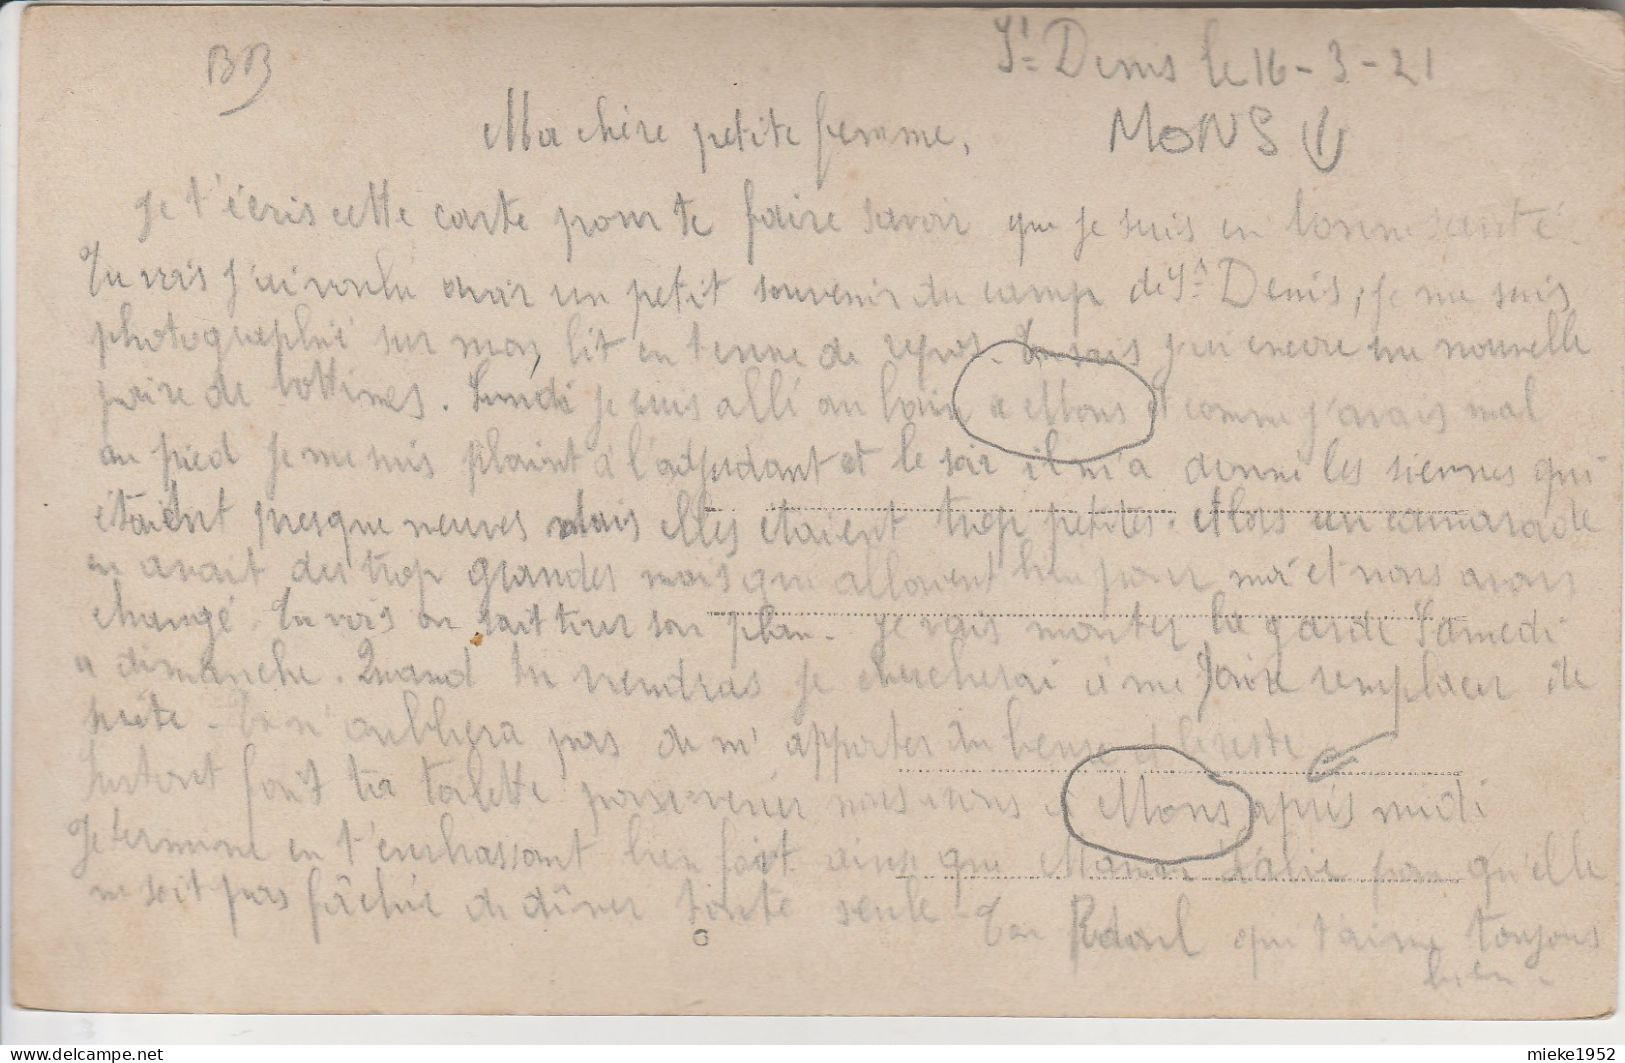 BB
St Denis le 16-3-21
Ma chère petite femme,
MONS
Je t'écris cette carte pour te faire savoir que je suis en bonne santé.
Tu vois j'ai voulu avoir un petit souvenir du camp de St Denis, je me suis
photographié sur mon lit en tenue de repos. Tu sais j'ai encore une nouvelle
paire de bottines. Lundi je suis allé au bain à Mons et comme j'avais mal
au pied je me suis plaint à l'adjudant et le soir il m'a donné les siennes qui
étaient presque neuves mais elles étaient trop petites. Alors un camarade
en avait des trop grandes mais qui allaient bien pour moi et nous avons
changé. Tu vois on sait tirer son plan. Je vais monter la garde Samedi
a dimanche. Quand tu viendras je chercherai à me faire remplacer de
suite. Tu n'oubliera pas de m'apporter du et le reste
Surtout fait ta toilette pour venir nous irons à Mons après midi
Je termine en t'embrassant bien fort ainsi que Maman pour qu'elle
ne soit pas fâchée de dîner toute seule. Ton qui t'aime toujours
bien.
mieke1952